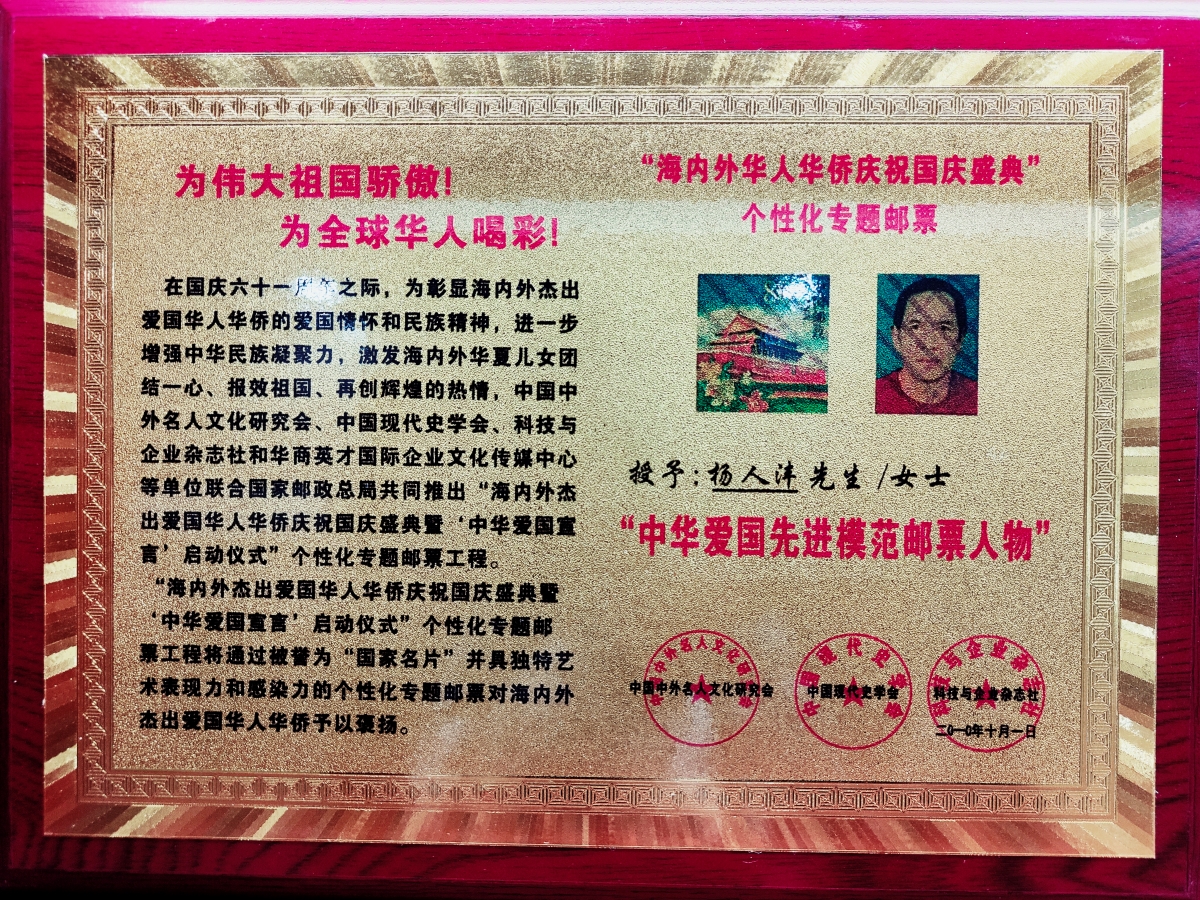 为伟大祖国骄傲!
为全球华人喝彩!
在国庆六十一周年之际，为彰显海内外杰出
爱国华人华侨的爱国情怀和民族精神，进一步
增强中华民族凝聚力，激发海内外华夏儿女团
结一心、报效祖国、再创辉煌的热情，中国中
外名人文化研究会、中国现代史学会、科技与
企业杂志社和华商英才国际企业文化传媒中心
等单位联合国家邮政总局共同推出“海内外杰
出爱国华人华侨庆祝国庆盛典暨‘中华爱国宣
言’启动仪式”个性化专题邮票工程。
“海内外杰出爱国华人华侨庆祝国庆盛典暨
‘中华爱国宣言’启动仪式”个性化专题邮
票工程将通过被誉为“国家名片”并具独特艺
术表现力和感染力的个性化专题邮票对海内外
杰出爱国华人华侨予以褒扬。
“海内外华人华侨庆祝国庆盛典”
个性化专题邮票
授予：杨人沣先生/女士
“中华爱国先进模范邮票人物”
中国中外名人文化研究会
中国中外名人文化研究会
中国现代史学会
中国现代史学会
科技与企业杂志社
科技与企业杂志社
二0一0年十月一日